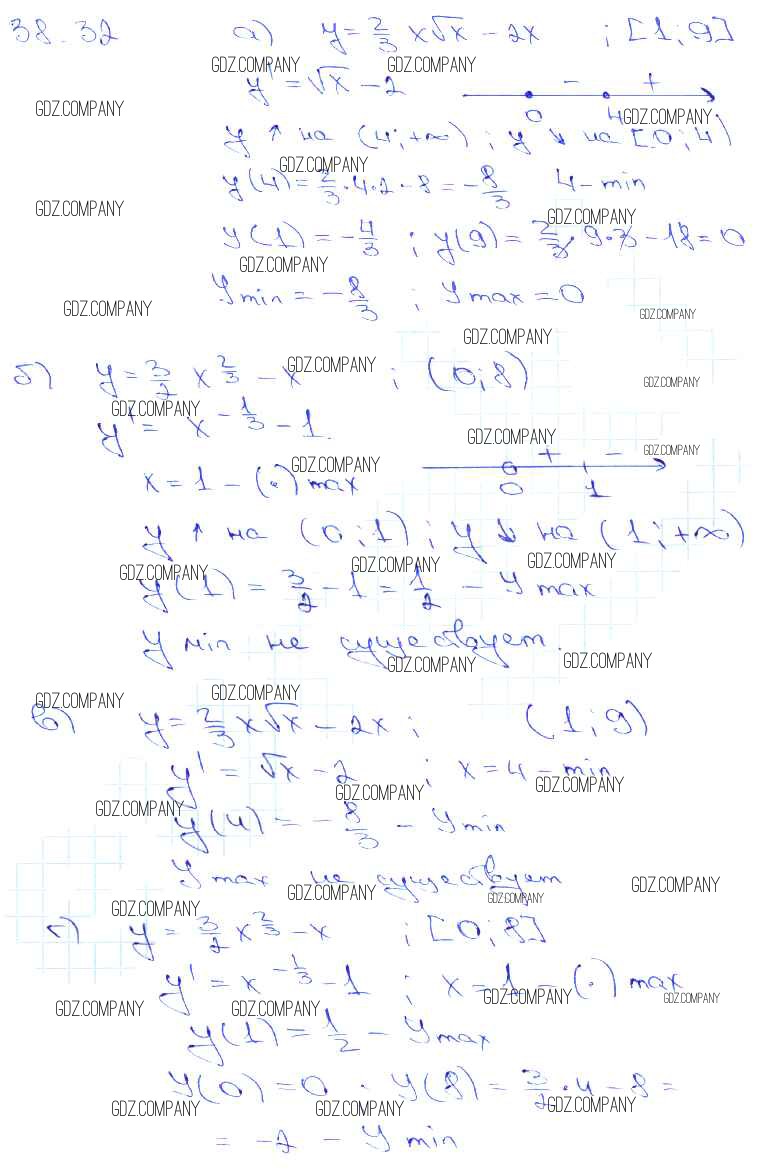 38.32 а) y = 2/3 x√x − 2x ; [1; 9]
GDZ.COMPANY GDZ.COMPANY
y' = √x − 2 − +
GDZ.COMPANY 0 4 GDZ.COMPANY
y ↑ на (4; +∞) ; y ↓ на [0; 4)
GDZ.COMPANY
y(4) = 2/3 · 4 · 2 − 8 = −8/3 4 − min
GDZ.COMPANY GDZ.COMPANY
y(1) = −4/3 ; y(9) = 2/3 · 9 · 3 − 18 = 0
GDZ.COMPANY
y min = −8/3 ; y max = 0
GDZ.COMPANY GDZ.COMPANY
GDZ.COMPANY
б) y = 3/2 x^2/3 − x ; (0; 8)
GDZ.COMPANY GDZ.COMPANY
GDZ.COMPANY
y' = x^−1/3 − 1
GDZ.COMPANY + − GDZ.COMPANY
x = 1 − (·) max 0 1
GDZ.COMPANY
y ↑ на (0; 1) ; y ↓ на (1; +∞)
GDZ.COMPANY GDZ.COMPANY GDZ.COMPANY
y(1) = 3/2 − 1 = 1/2 − y max
y min не существует.
GDZ.COMPANY GDZ.COMPANY
GDZ.COMPANY GDZ.COMPANY
в) y = 2/3 x√x − 2x ; (1; 9)
y' = √x − 2 ; x = 4 − min
GDZ.COMPANY GDZ.COMPANY
GDZ.COMPANY
y(4) = −8/3 − y min
y max не существует
GDZ.COMPANY GDZ.COMPANY GDZ.COMPANY
GDZ.COMPANY
г) y = 3/2 x^2/3 − x ; [0; 8]
y' = x^−1/3 − 1 ; x = 1 − (·) max
GDZ.COMPANY GDZ.COMPANY GDZ.COMPANY GDZ.COMPANY
y(1) = 1/2 − y max
y(0) = 0 . y(8) = 3/2 · 4 − 8 =
GDZ.COMPANY GDZ.COMPANY GDZ.COMPANY
= −2 − y min